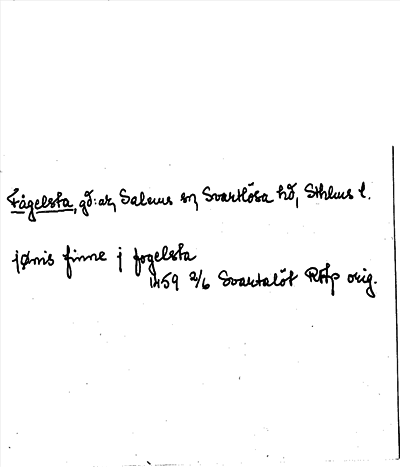 Fågelsta, gd:ar, Salems sn, Svartlösa hd, Sthlms l.
jønis finne j fogelsta
1459 2/6 Svartalöt RAp orig.